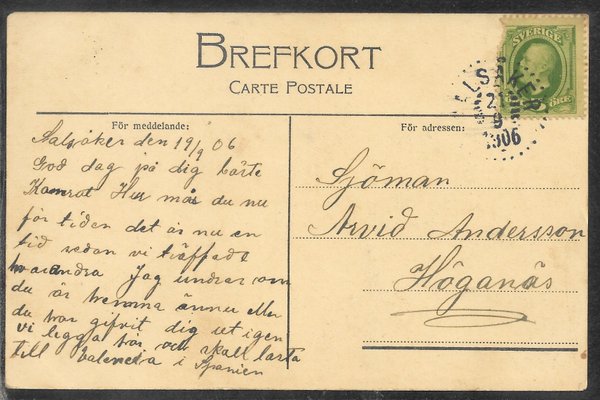 BREFKORT
CARTE POSTALE
För meddelande:
För adressen:
SVERIGE
ÖRE
21
9
1906
den 19/9 06
God dag på dig bäste
Kamrat Hur mår du nu
för tiden det är nu en
tid sedan vi träffade
varandra Jag undrar om
du är hemma ännu eller
du har gifvit dig ut igen
vi ligga här och skall lasta
till Valencia i Spanien
Sjöman
Arvid Andersson
Höganäs